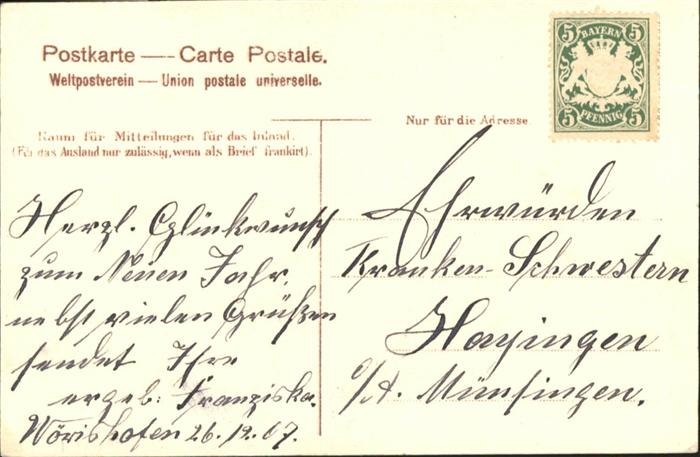 Postkarte — Carte Postale.
Weltpostverein — Union postale universelle.
5 BAYERN 5
5 PFENNIG 5
Nur für die Adresse
Raum für Mitteilungen für das Inland.
(Für das Ausland nur zulässig, wenn als Brief frankirt).
Herzl. Glückwunsch
zum Neuen Jahr.
nebst vielen Grüßen
sendet Ihre
ergeb: Franziska.
Wörishofen 26.12.07.
Ehrwürden
Kranken-Schwestern
Hayingen
o/A. Münsingen.